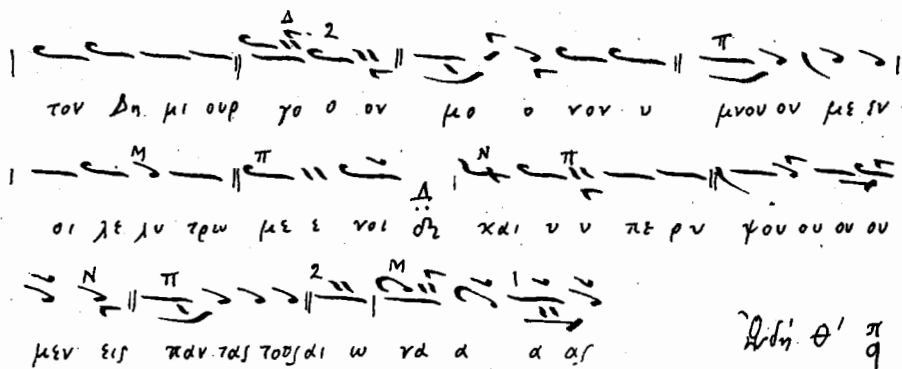 Δ 2
τον Δη μι ουρ γο ο ον μο ο νον υ μνου ου με εν
π
οι λε λυ τρω με ε νοι Δ και υ υ πε ρυ ψου ου ου ου
Μ π Ν π
μεν εις παν τας τους αι ω να α α ας
Ν π 2 Μ 1
Ὠδή θ' π q